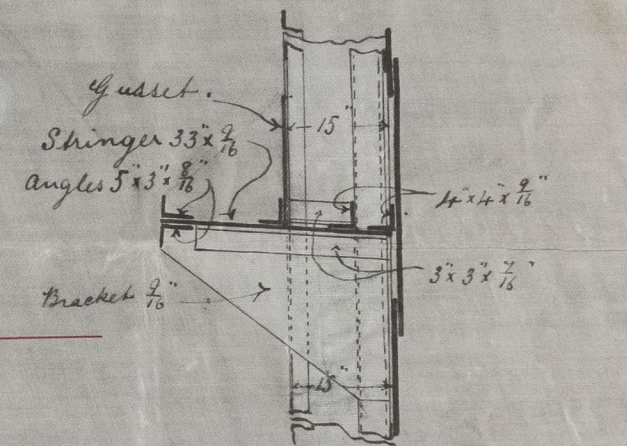 Gusset.
15"
Stringer 33" x 9/16
Angles 5" x 3" x 8/16"
4" x 4" x 9/16"
3" x 3" x 7/16"
Bracket 9/16"
15"